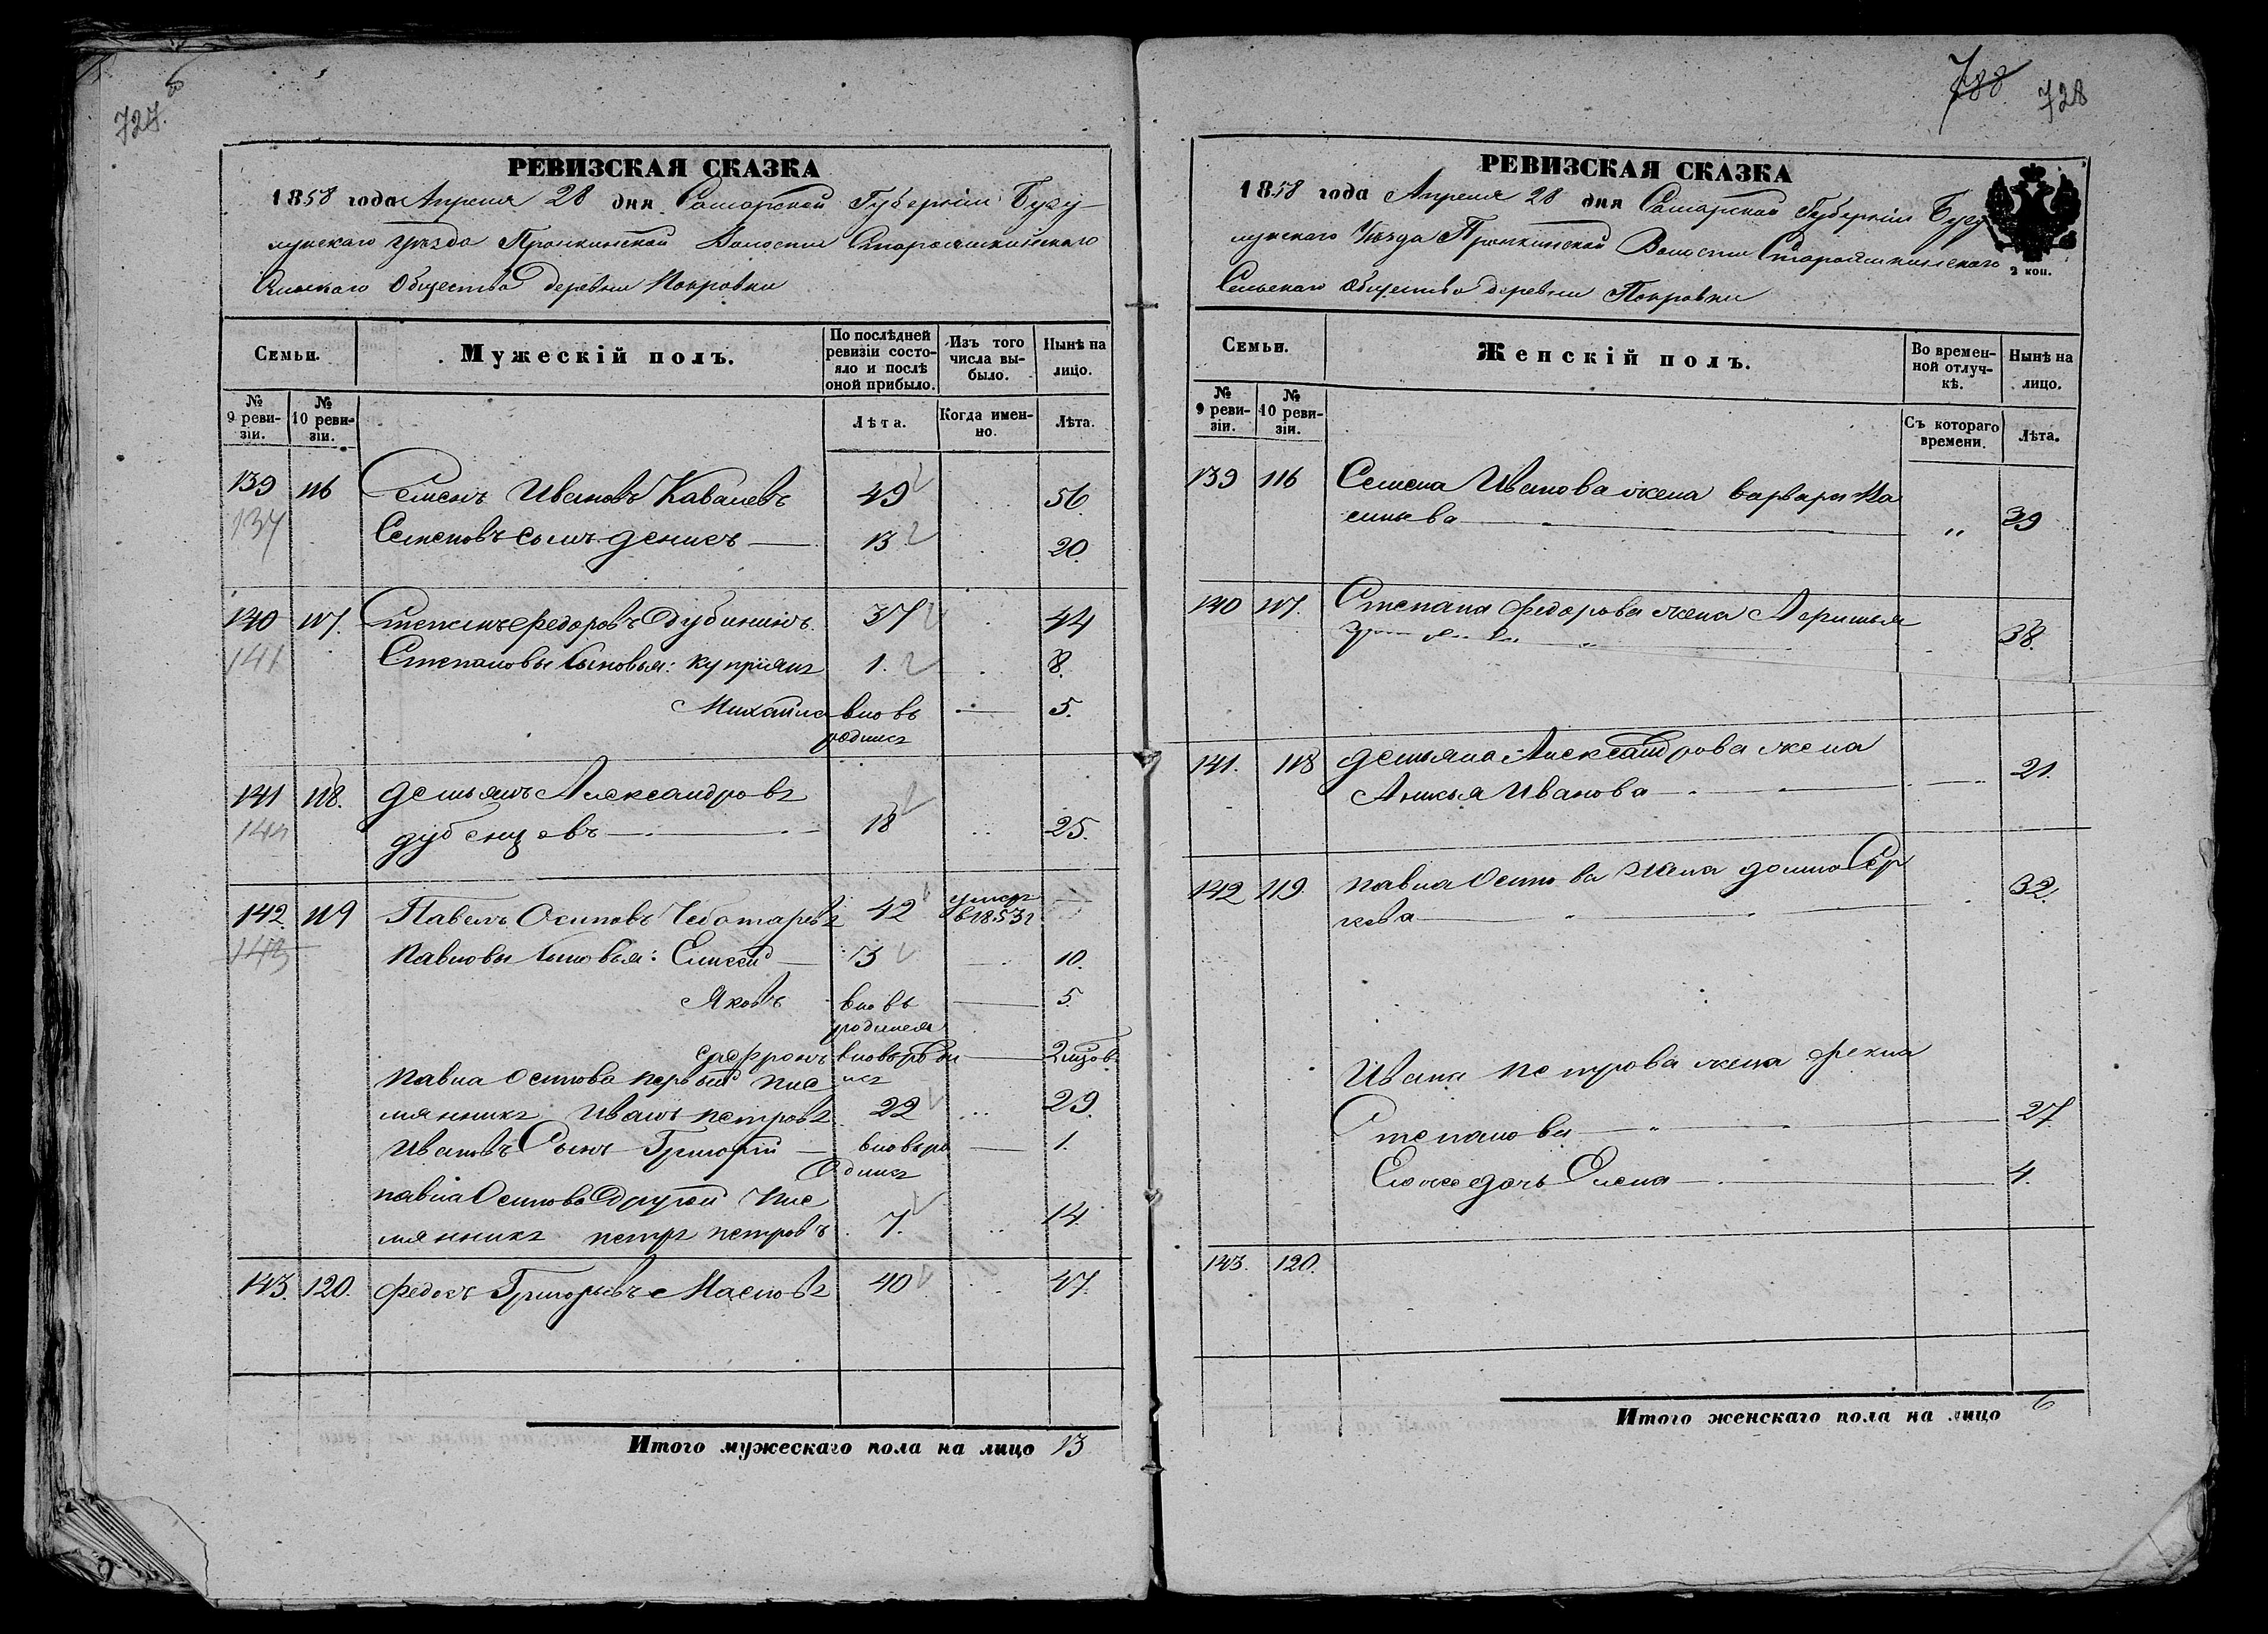 727.
РЕВИЗСКАЯ СКАЗКА
1858 года Апреля 28 дня Самарской Губерніи Бузу
лукскаго Уѣзда Пронкинской Волости Староашкинскаго
Сельскаго Общества деревни Покровки
Семьи.
Мужескій полъ.
По послѣдней ревизіи состояло и послѣ оной прибыло.
Изъ того числа выбыло.
Нынѣ на лицо.
№ 9 ревизіи.
№ 10 ревизіи.
Лѣта.
Когда именно.
Лѣта.
139 116 Семенъ Ивановъ Кавалевъ 49 56
137 Семеновъ сынъ денисъ 13 20
140 117. Степанъ федоровъ Дубининъ 37 44
141 Степановы сыновья: купріянъ 1. 8.
Михайла вновь 5.
родился
141 118. демьянъ Александровъ
дубенцовъ 18 25.
142. 119 Павелъ Осиповъ Чеботаревъ 42 умеръ в 1853 г
143 Павловы сыновья: Елисей 3 10.
Яковъ вновь 5.
родился
сафронъ вновь 2
Павла Осипова первый пле
мянникъ Иванъ петровъ 22 29.
Ивановъ Сынъ Григорій вновь ро 1.
дился
павла Осипова Другой пле
мянникъ петръ петровъ 7. 14.
143. 120. федоръ Григорьевъ Масловъ 40 47.
Итого мужескаго пола на лицо 13
788 728
РЕВИЗСКАЯ СКАЗКА
1858 года Апреля 28 дня Самарской Губерніи Бузу
лукскаго Уѣзда Пронкинской Волости Староашкинскаго
2 коп.
Сельскаго Общества деревни Покровки
Семьи.
Женскій полъ.
Во временной отлучкѣ.
Нынѣ на лицо.
№ 9 ревизіи.
№ 10 ревизіи.
Съ котораго времени.
Лѣта.
139 116 Семена Иванова жена варвара Ва
сильева 39
140 117. Степана федорова жена
38.
141. 118 демьяна Александрова жена
Иванова 21.
142 119. павла Осипова жена домна Сер
геева 32.
Ивана петрова жена фекла
Степанова 27
Его же дочь Елена 4.
143. 120.
Итого женскаго пола на лицо 6